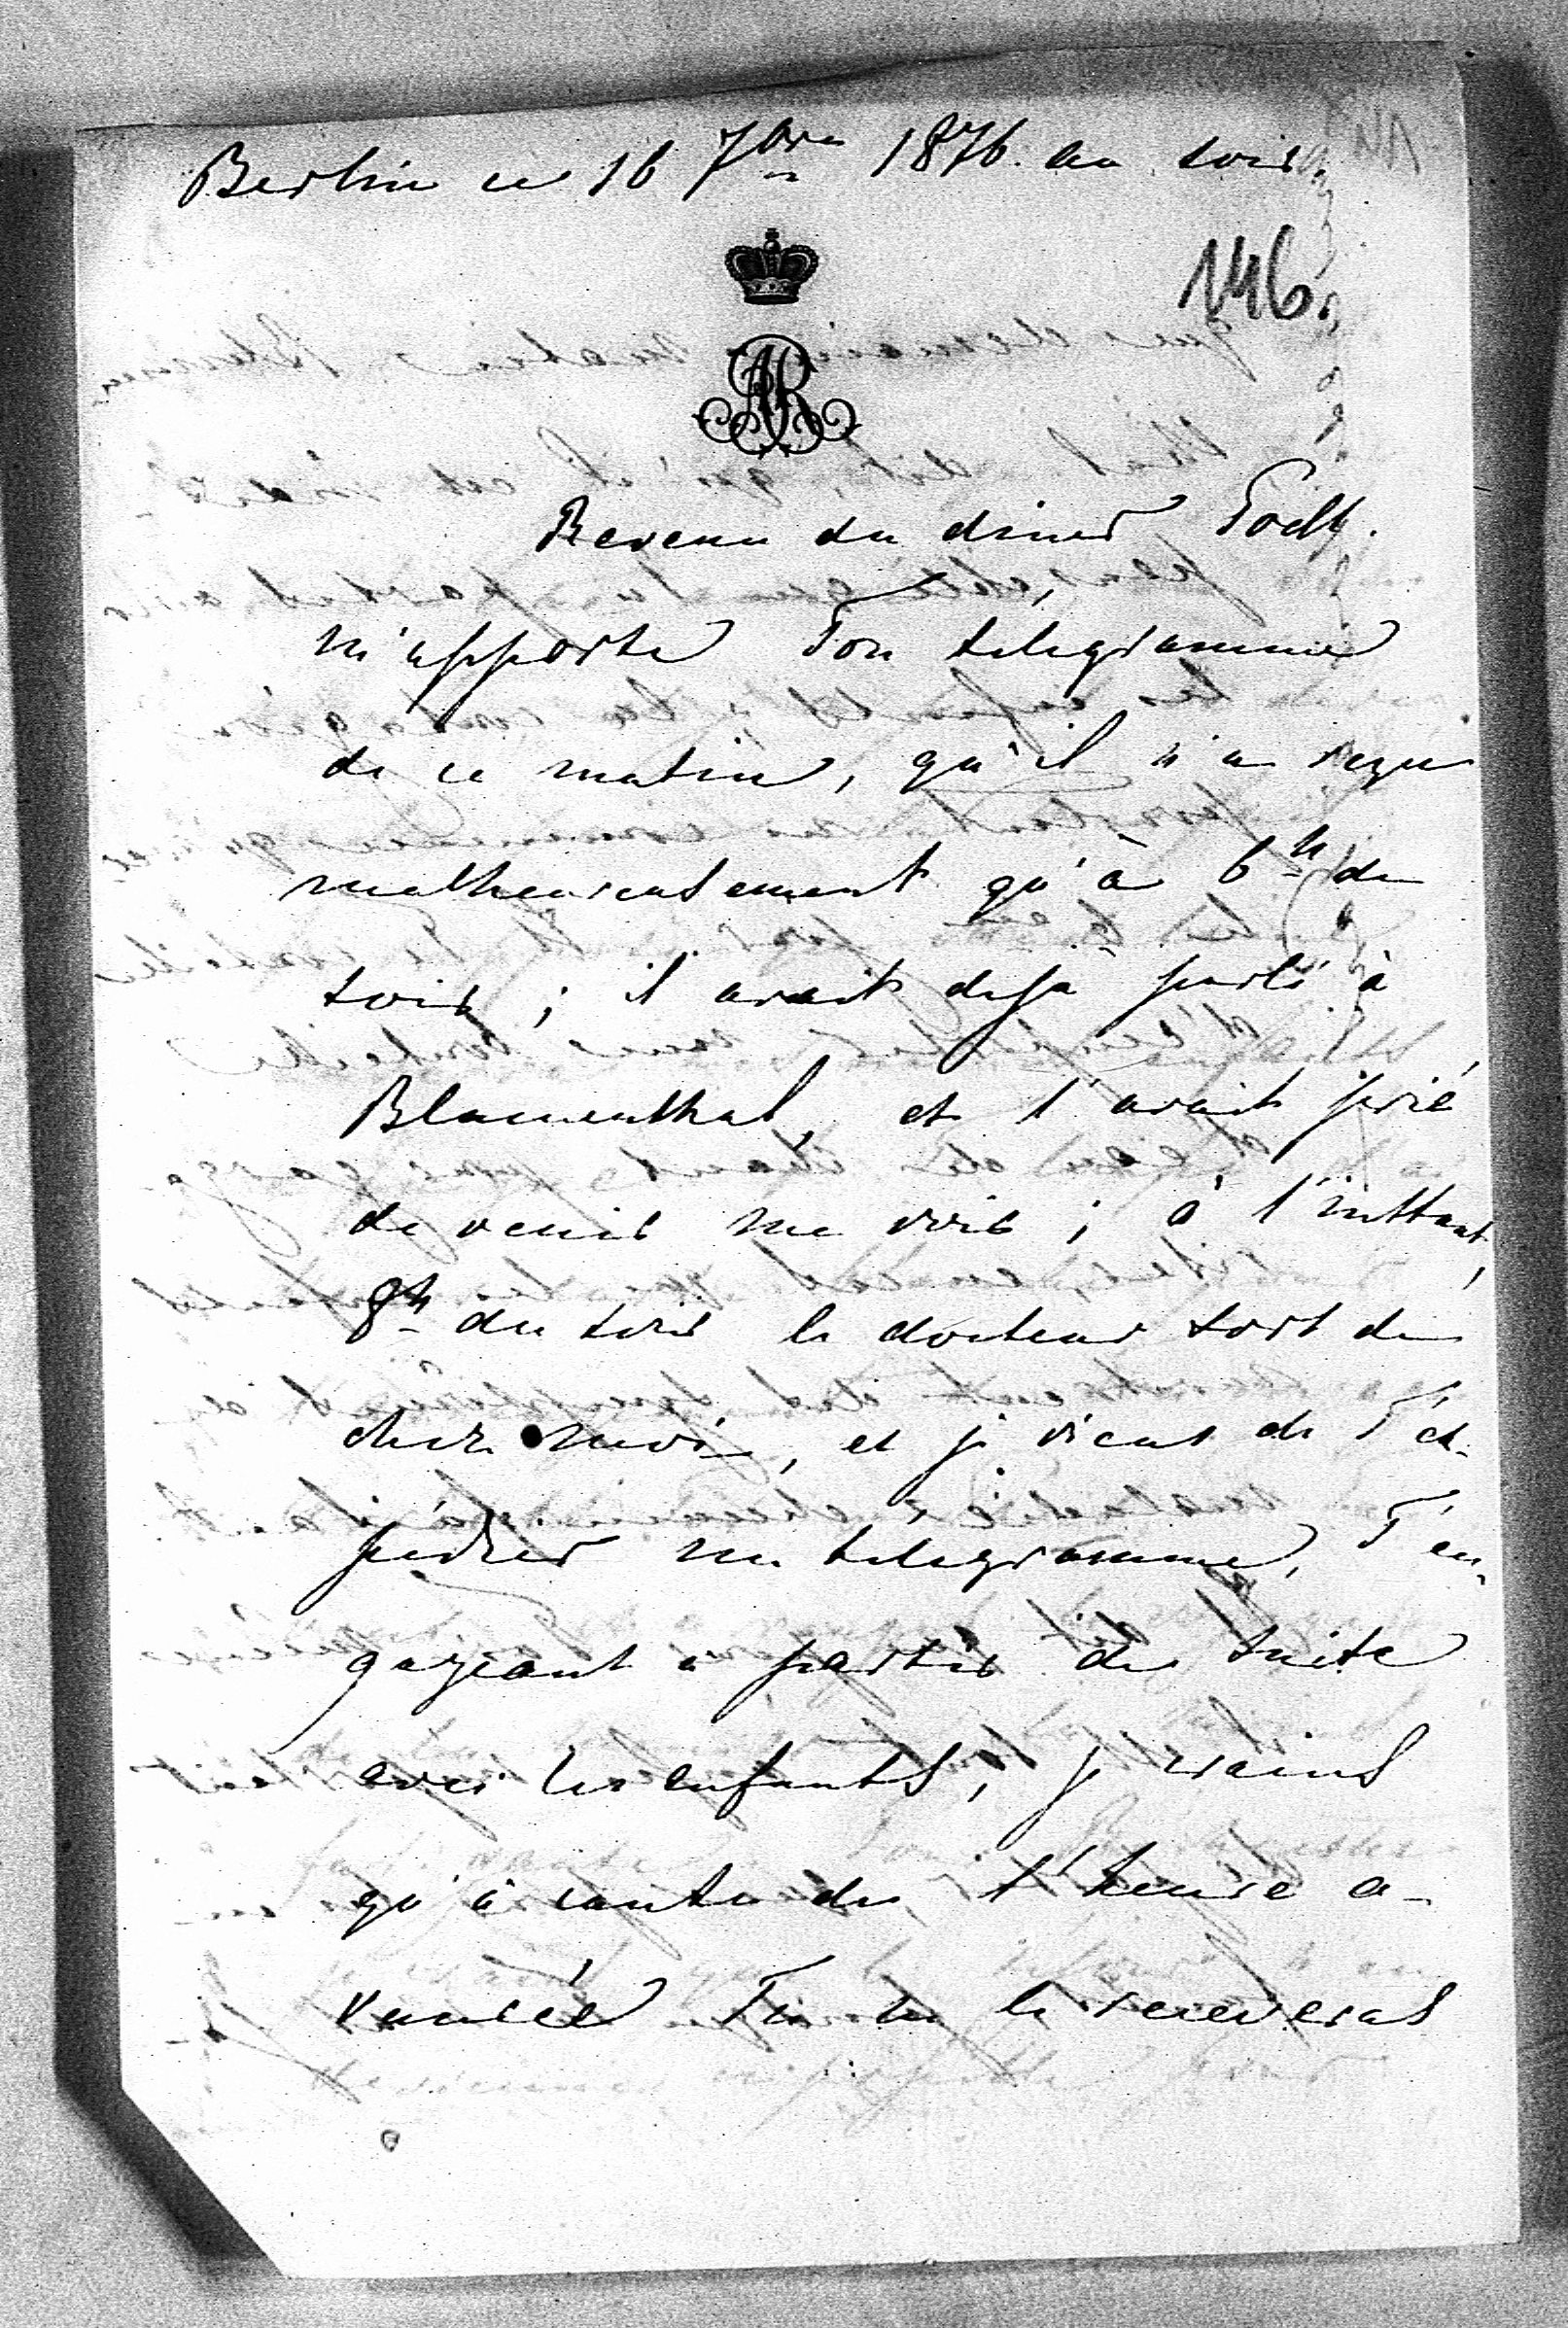 Berlin ce 16 7bre 1876. au soir.
146.
AR
Revenu du diner Podb.
m'apporte Ton telegramme
de ce matin, qu'il n'a reçu
malheureusement qu'à 6h du
soir; il avait déjà parlé à
Blumenthal, et l'avait prié
de venir me voir; à l'instant,
8h du soir le docteur sort de
chez moi, et je viens de T'ex-
pédier un telegramme, T'en-
gageant à partir de suite
avec les enfants; je crains
qu'à cause de l'heure a-
vancée Tu ne le recevras